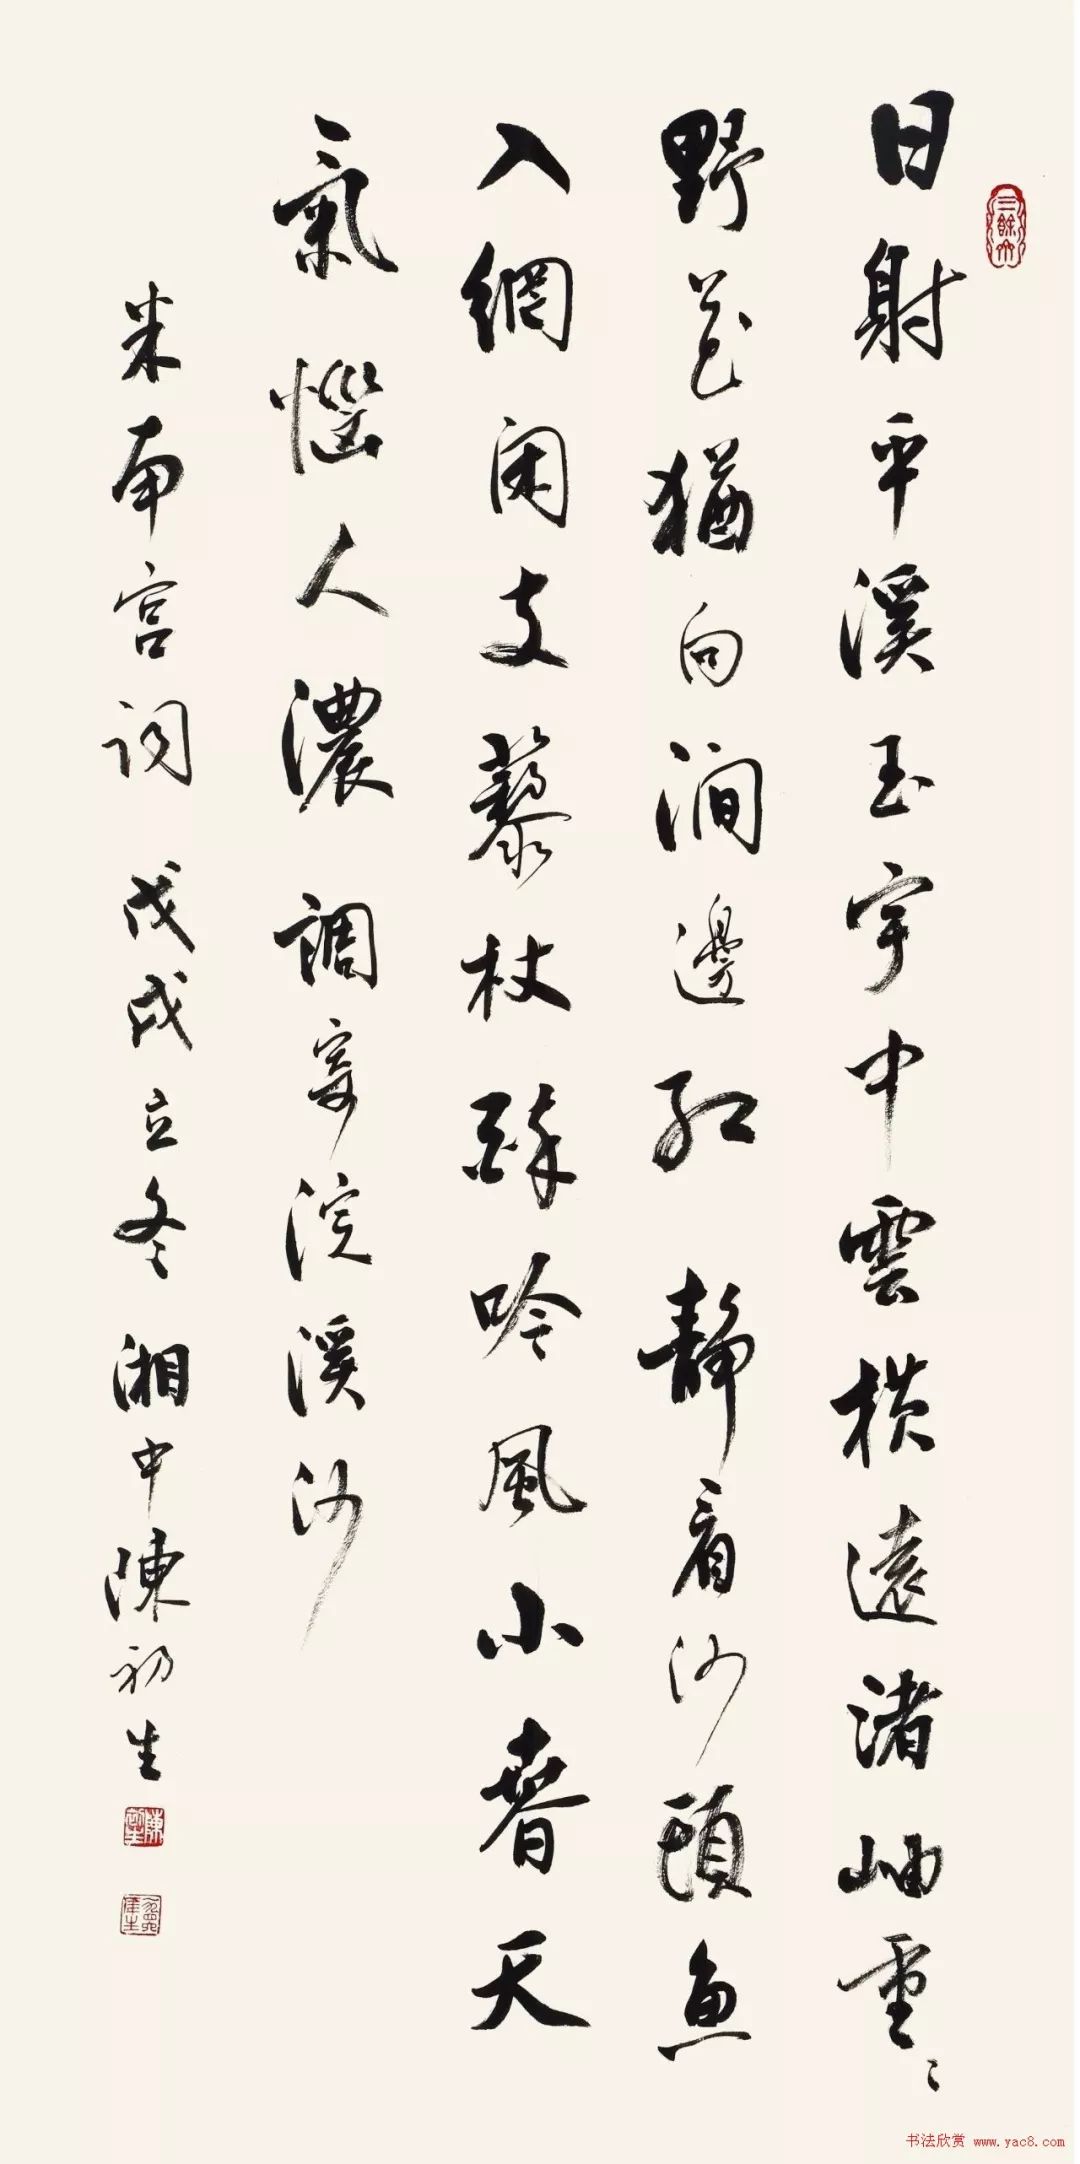 日射平溪玉宇中雲橫遠渚岫重〻
野花猶向澗邊紅靜看沙頭魚
入網閑支藜杖醉吟風小春天
氣惱人濃調寄浣溪沙
米南宮詞戊戌立冬湘中陳初生
陳初生
书法欣赏 www.yac8.com